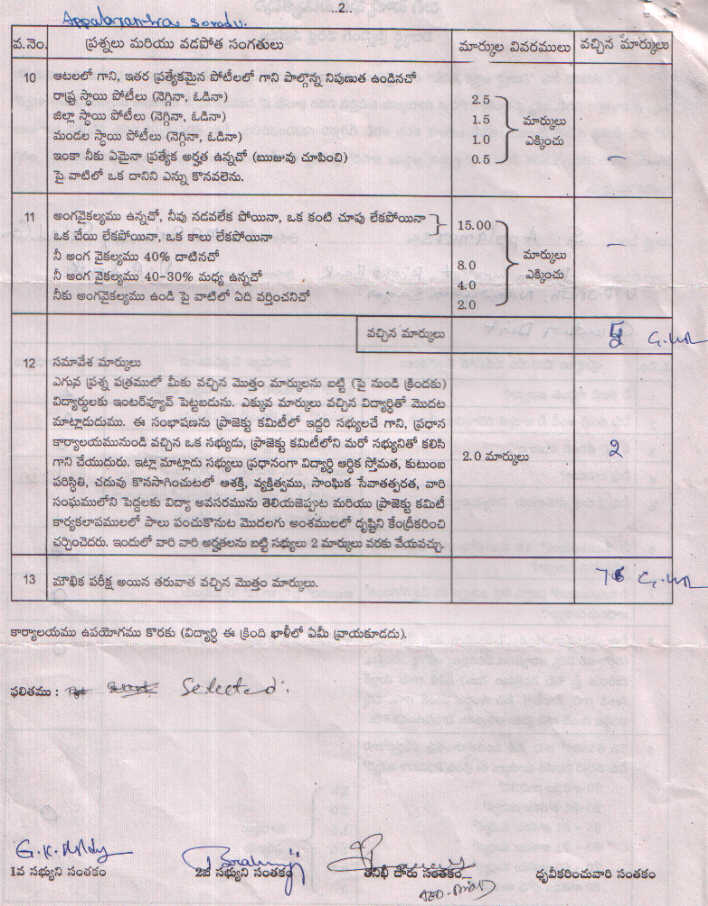 ..2..
Appalanantra. soradu.
వ.నెం.
ప్రశ్నలు మరియు వడపోత సంగతులు
మార్కుల వివరములు
వచ్చిన మార్కులు
10
ఆటలలో గాని, ఇతర ప్రత్యేకమైన పోటీలలో గాని పాల్గొన్న నిపుణత ఉండినచో
రాష్ట్ర స్థాయి పోటీలు (నెగ్గినా, ఓడినా) 2.5
జిల్లా స్థాయి పోటీలు (నెగ్గినా, ఓడినా) 1.5
మండల స్థాయి పోటీలు (నెగ్గినా, ఓడినా) 1.0
ఇంకా నీకు ఏమైనా ప్రత్యేక అర్హత ఉన్నచో (ఋజువు చూపించి) 0.5
మార్కులు
ఎక్కించు
–
పై వాటిలో ఒక దానిని ఎన్ను కొనవలెను.
11
అంగవైకల్యము ఉన్నచో, నీవు నడవలేక పోయినా, ఒక కంటి చూపు లేకపోయినా
ఒక చేయి లేకపోయినా, ఒక కాలు లేకపోయినా
15.00
నీ అంగ వైకల్యము 40% దాటినచో 8.0
నీ అంగ వైకల్యము 40-30% మధ్య ఉన్నచో 4.0
నీకు అంగవైకల్యము ఉండి పై వాటిలో ఏది వర్తించనిచో 2.0
మార్కులు
ఎక్కించు
–
వచ్చిన మార్కులు
12
సమావేశ మార్కులు
ఎగువ ప్రశ్న పత్రములో మీకు వచ్చిన మొత్తం మార్కులను బట్టి (పై నుండి క్రిందకు)
విద్యార్థులకు ఇంటర్‌వ్యూన్ పెట్టబడును. ఎక్కువ మార్కులు వచ్చిన విద్యార్థితో మొదట
మాట్లాడుదుము. ఈ సంభాషణను ప్రాజెక్టు కమిటీలో ఇద్దరి సభ్యులచే గాని, ప్రధాన
కార్యాలయమునుండి వచ్చిన ఒక సభ్యుడు, ప్రాజెక్టు కమిటీలోని మరో సభ్యునితో కలిసి
గాని చేయుదురు. ఇట్లా మాట్లాడు సభ్యులు ప్రధానంగా విద్యార్థి ఆర్ధిక స్తోమత, కుటుంబ
పరిస్థితి, చదువు కొనసాగించుటలో ఆశక్తి, వ్యక్తిత్వము, సాంఘిక సేవాతత్పరత, వారి
సంఘములోని పెద్దలకు విద్యా అవసరమును తెలియజెప్పుట మరియు ప్రాజెక్టు కమిటీ
కార్యకలాపములలో పాలు పంచుకొనుట మొదలగు అంశములలో దృష్టిని కేంద్రీకరించి
చర్చించెదరు. ఇందులో వారి వారి అర్హతలను బట్టి సభ్యులు 2 మార్కులు వరకు వేయవచ్చు.
2.0 మార్కులు
2
13
మౌఖిక పరీక్ష అయిన తరువాత వచ్చిన మొత్తం మార్కులు.
కార్యాలయము ఉపయోగము కొరకు (విద్యార్థి ఈ క్రింది ఖాళీలో ఏమీ వ్రాయకూడదు).
ఫలితము : Selected.
G.K. Reddy
1వ సభ్యుని సంతకం
2వ సభ్యుని సంతకం
తనిఖీ దారు సంతకం
ధృవీకరించువారి సంతకం